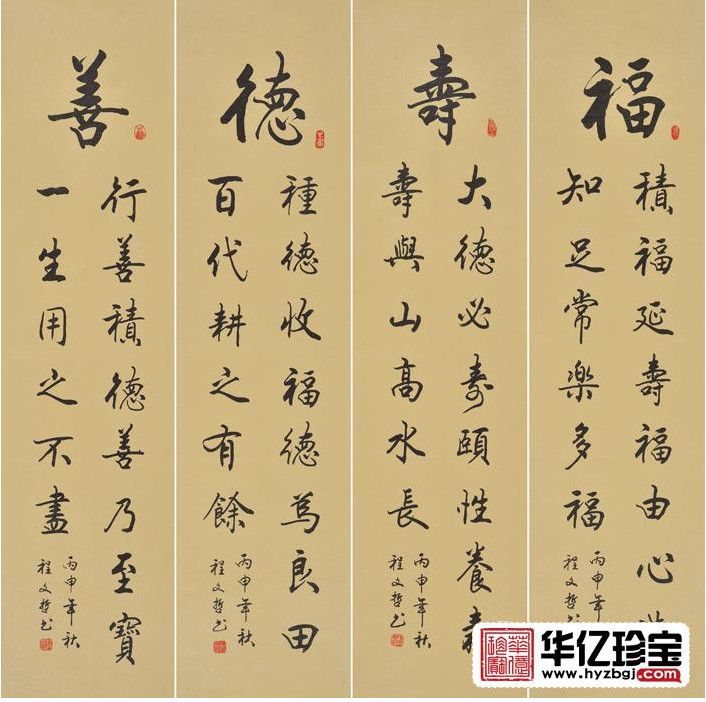 福
積福延壽福由心
知足常樂多福
丙申年
程文哲
壽
大德必壽頤性養壽
壽與山高水長
丙申年秋
程文哲书
德
種德收福德爲良田
百代耕之有餘
丙申年秋
程文哲书
善
行善積德善乃至寶
一生用之不盡
丙申年秋
程文哲书
华亿珍宝
www.hyzbgj.com